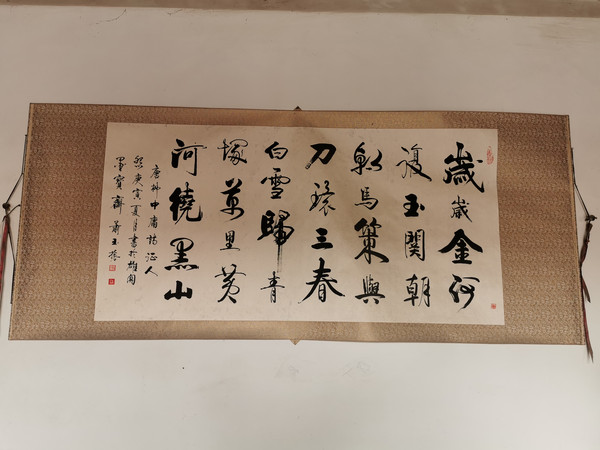 歲歲金河
復玉關朝
朝馬策與
刀環三春
白雪歸青
塚萬里黃
河繞黑山
唐柳中庸詩征人
怨庚寅夏月書於雄關
墨寶齋